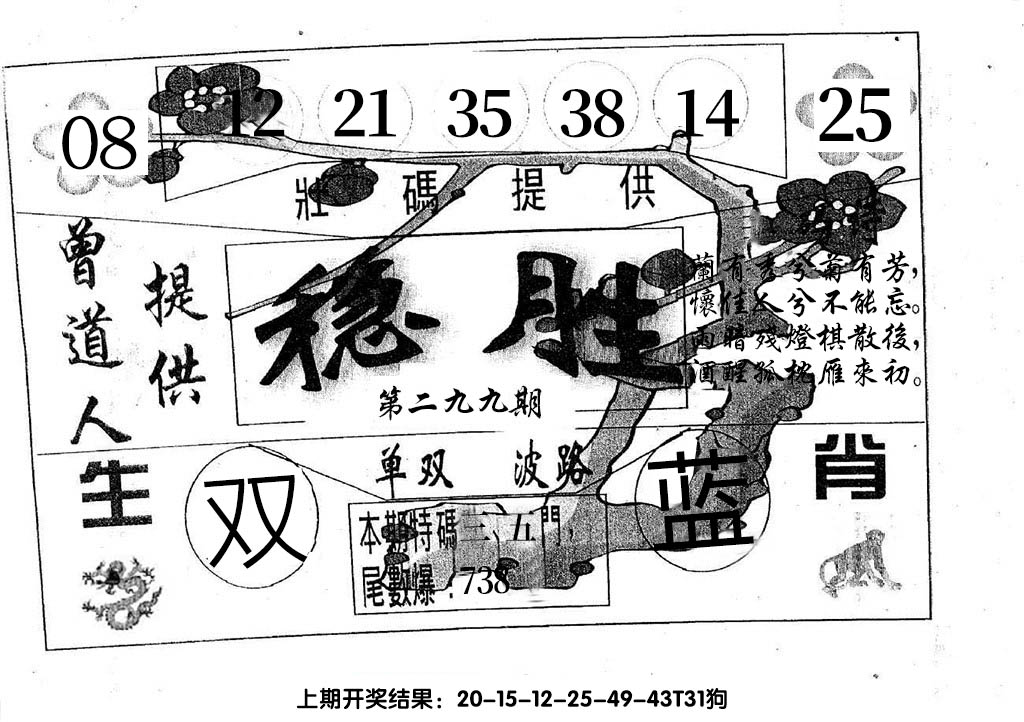 08 12 21 35 38 14 25
壯碼提供
曾道人
提供
稳胜
第二九九期
蘭有秀兮菊有芳，
懷佳人兮不能忘。
雨暗殘燈棋散後，
酒醒孤枕雁來初。
单双 波路
生
双
蓝
肖
本期特碼三、五門，
尾數爆：738
上期开奖结果：20-15-12-25-49-43T31狗